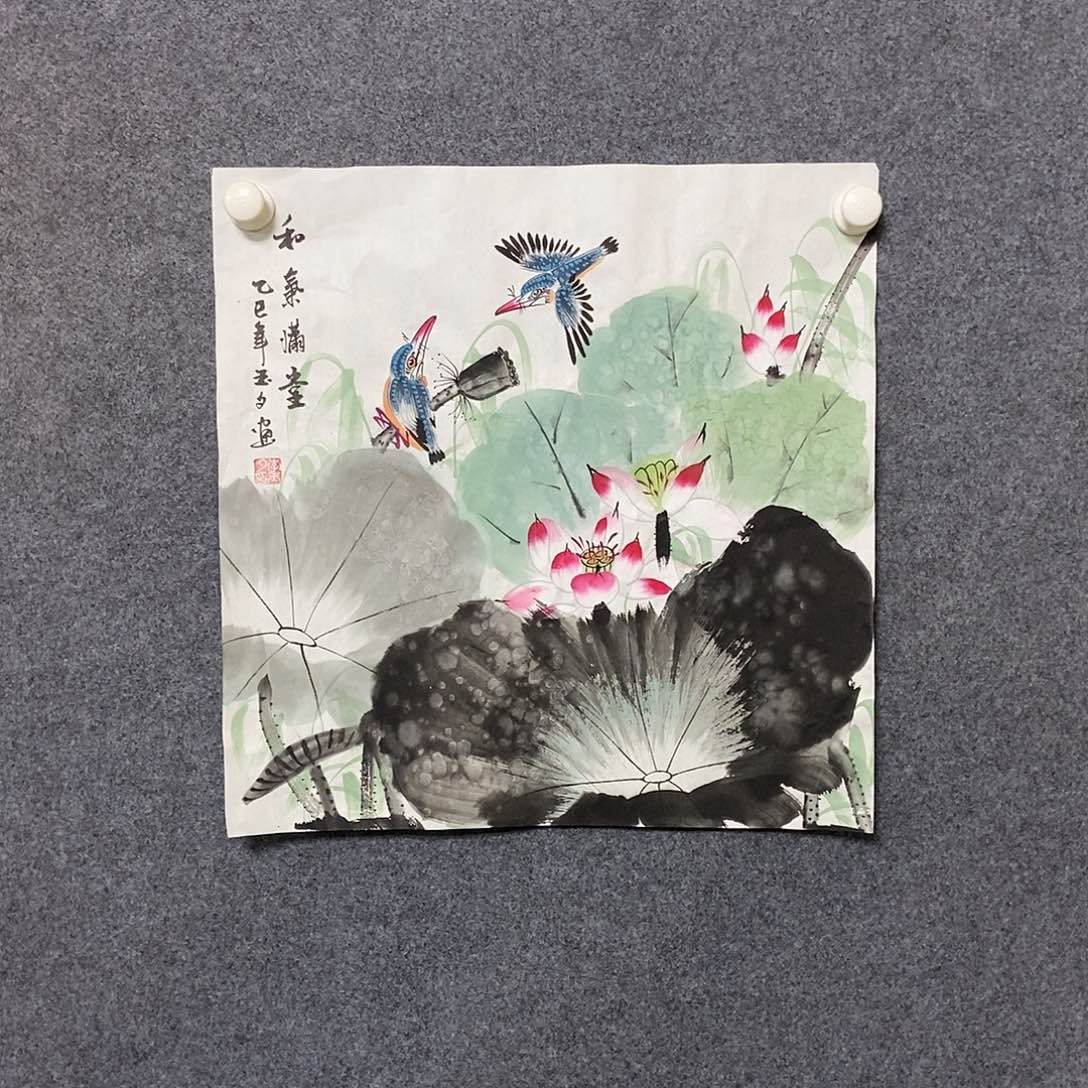 和氣满堂
乙巳年玉夕画